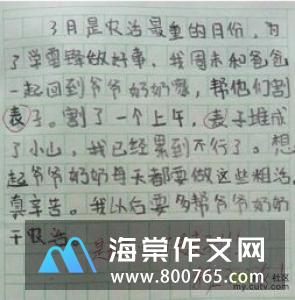 3月是农活最重的月份,为
了学雷锋做好事,我周末和爸爸
一起回到爷爷奶奶家,帮他们割
麦子。割了一个上午,麦子堆成
了小山,我已经累到不行了。想
起爷爷奶奶每天都要做这些粗活,
真辛苦。我以后要多帮爷爷奶奶
干农活
海棠作文网
www.800765.com
社区
my.cutv.com